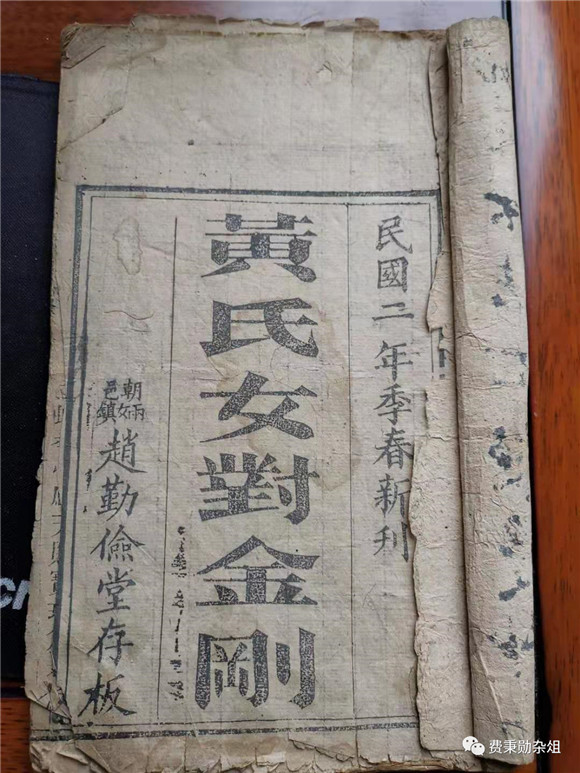 民國二年季春新刊
黃氏女對金剛
朝邑兩女鎮
趙勤儉堂存板
费秉勋杂俎